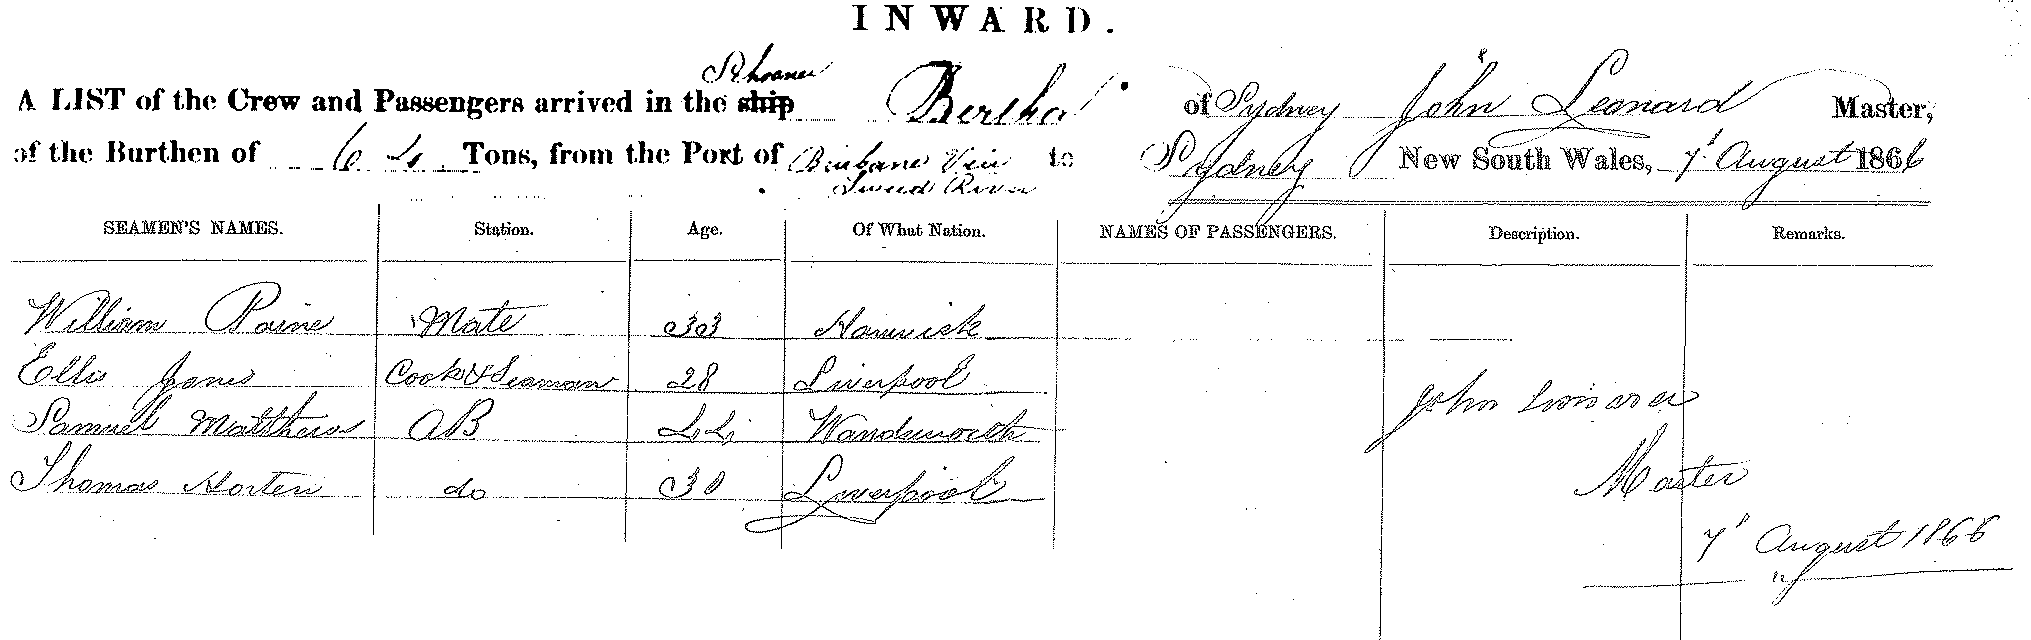 INWARD.
Schooner
A LIST of the Crew and Passengers arrived in the ship Bertha of Sydney John Leonard Master,
of the Burthen of 64 Tons, from the Port of Brisbane Via to Sydney New South Wales, 7' August 1866
Tweed River
SEAMEN'S NAMES. Station. Age. Of What Nation. NAMES OF PASSENGERS. Description. Remarks.
William Paine Mate 33 Harwich
Ellis Jones Cook & Seaman 28 Liverpool
John Leonard
Samuel Matthews AB 44 Wandsworth
Thomas Horten do 30 Liverpool
Master
7' August 1866